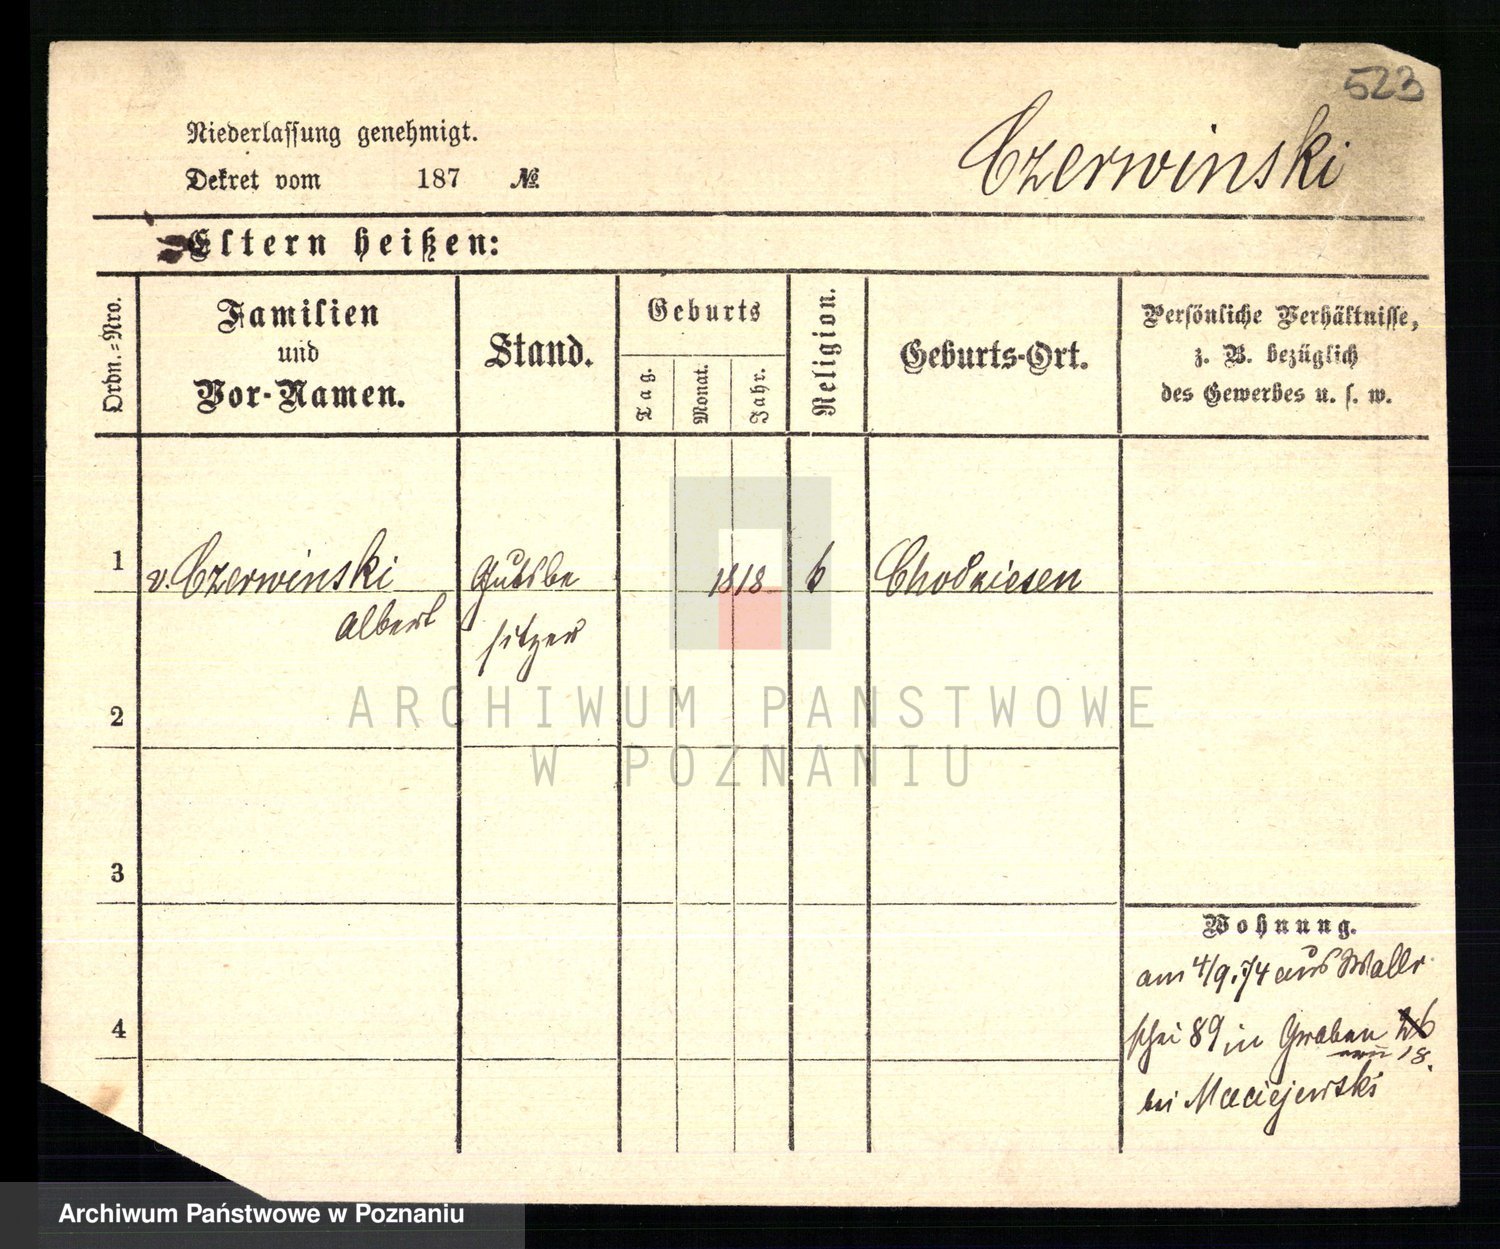 523
Niederlassung genehmigt.
Dekret vom 187 №
Czerwinski
Eltern heißen:
Ordn.-Nro.
Familien
und
Vor-Namen.
Stand.
Geburts
Tag.
Monat.
Jahr.
Religion.
Geburts-Ort.
Persönliche Verhältnisse,
z. B. bezüglich
des Gewerbes u. s. w.
1
v. Czerwinski
Albert
Gutsbe
sitzer
1818
Chodziesen
2
3
4
Wohnung.
am 4/9.74 aus Wallr
schei 89 in Graben
18.
bei Maciejewski
ARCHIWUM PAŃSTWOWE
W POZNANIU
Archiwum Państwowe w Poznaniu